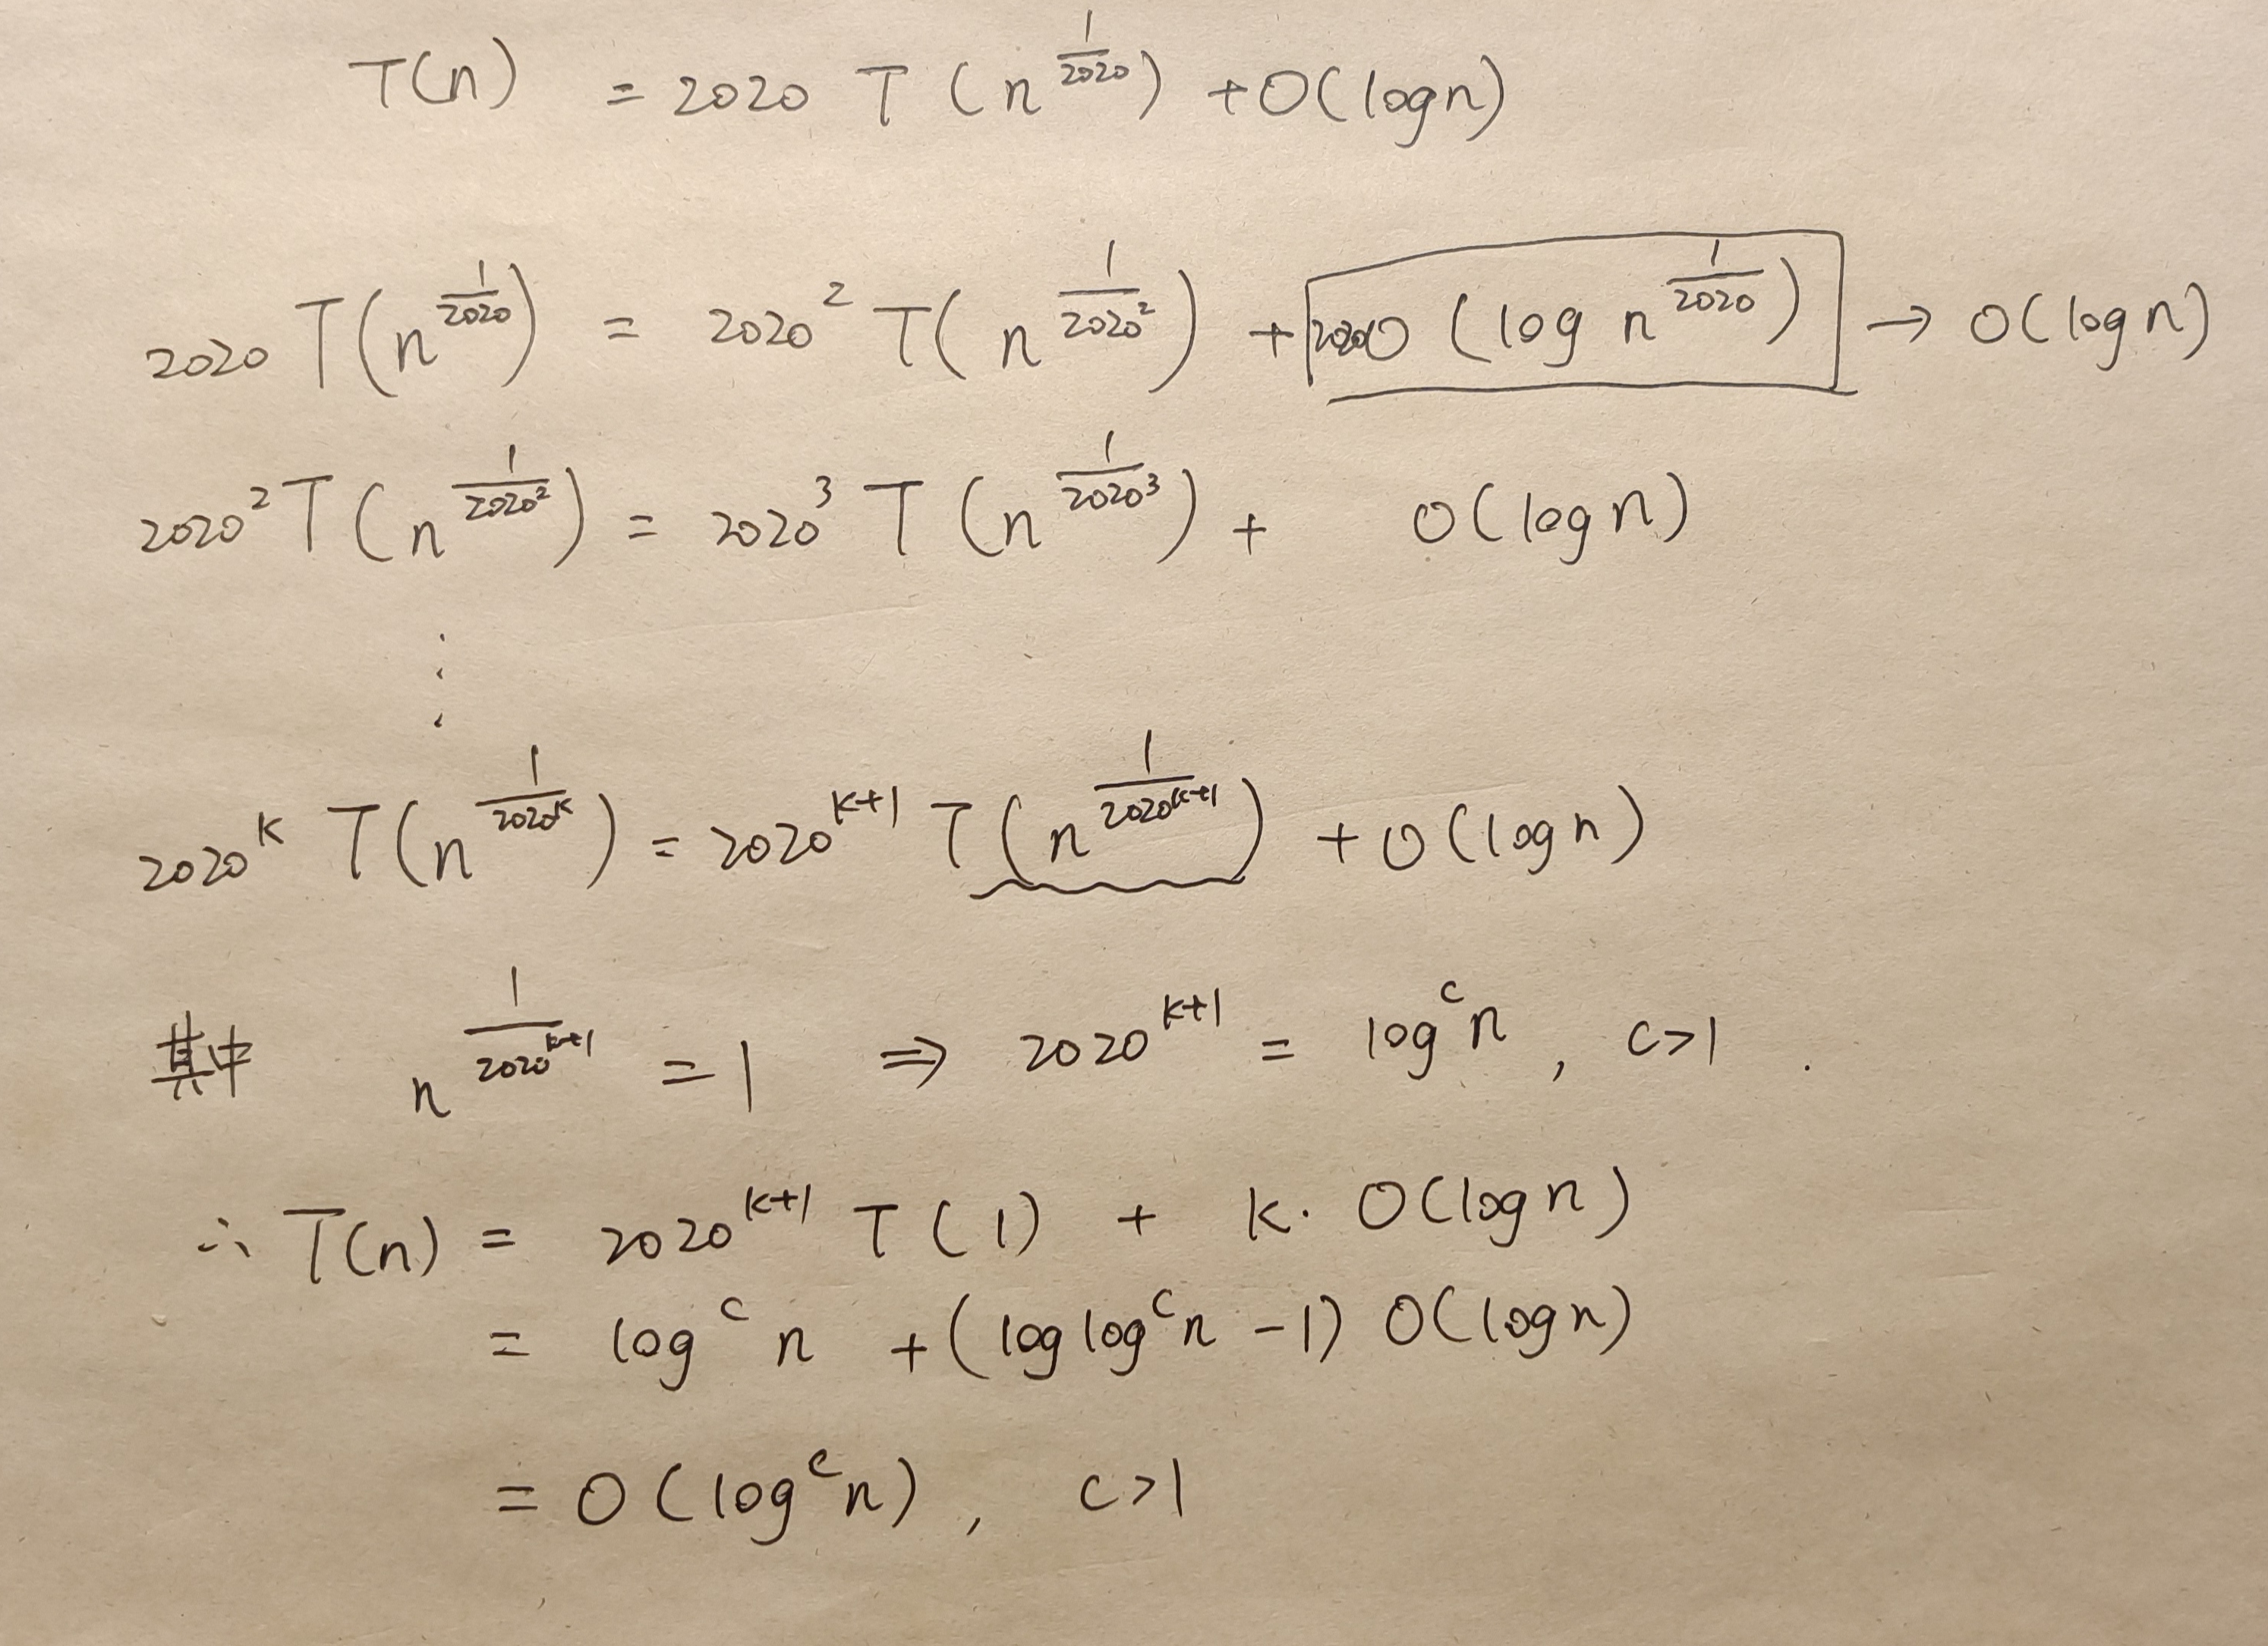 T(n) = 2020 T(n^{\frac{1}{2020}}) + O(log n)
2020 T(n^{\frac{1}{2020}}) = 2020^2 T(n^{\frac{1}{2020^2}}) + 2020 O(log n^{\frac{1}{2020}}) → O(log n)
2020^2 T(n^{\frac{1}{2020^2}}) = 2020^3 T(n^{\frac{1}{2020^3}}) + O(log n)
⋮
2020^k T(n^{\frac{1}{2020^k}}) = 2020^{k+1} T(n^{\frac{1}{2020^{k+1}}}) + O(log n)
其中 n^{\frac{1}{2020^{k+1}}} = 1 ⇒ 2020^{k+1} = log^c n , c>1 .
∴ T(n) = 2020^{k+1} T(1) + k · O(log n)
= log^c n + (log log^c n - 1) O(log n)
= O(log^c n) , c>1